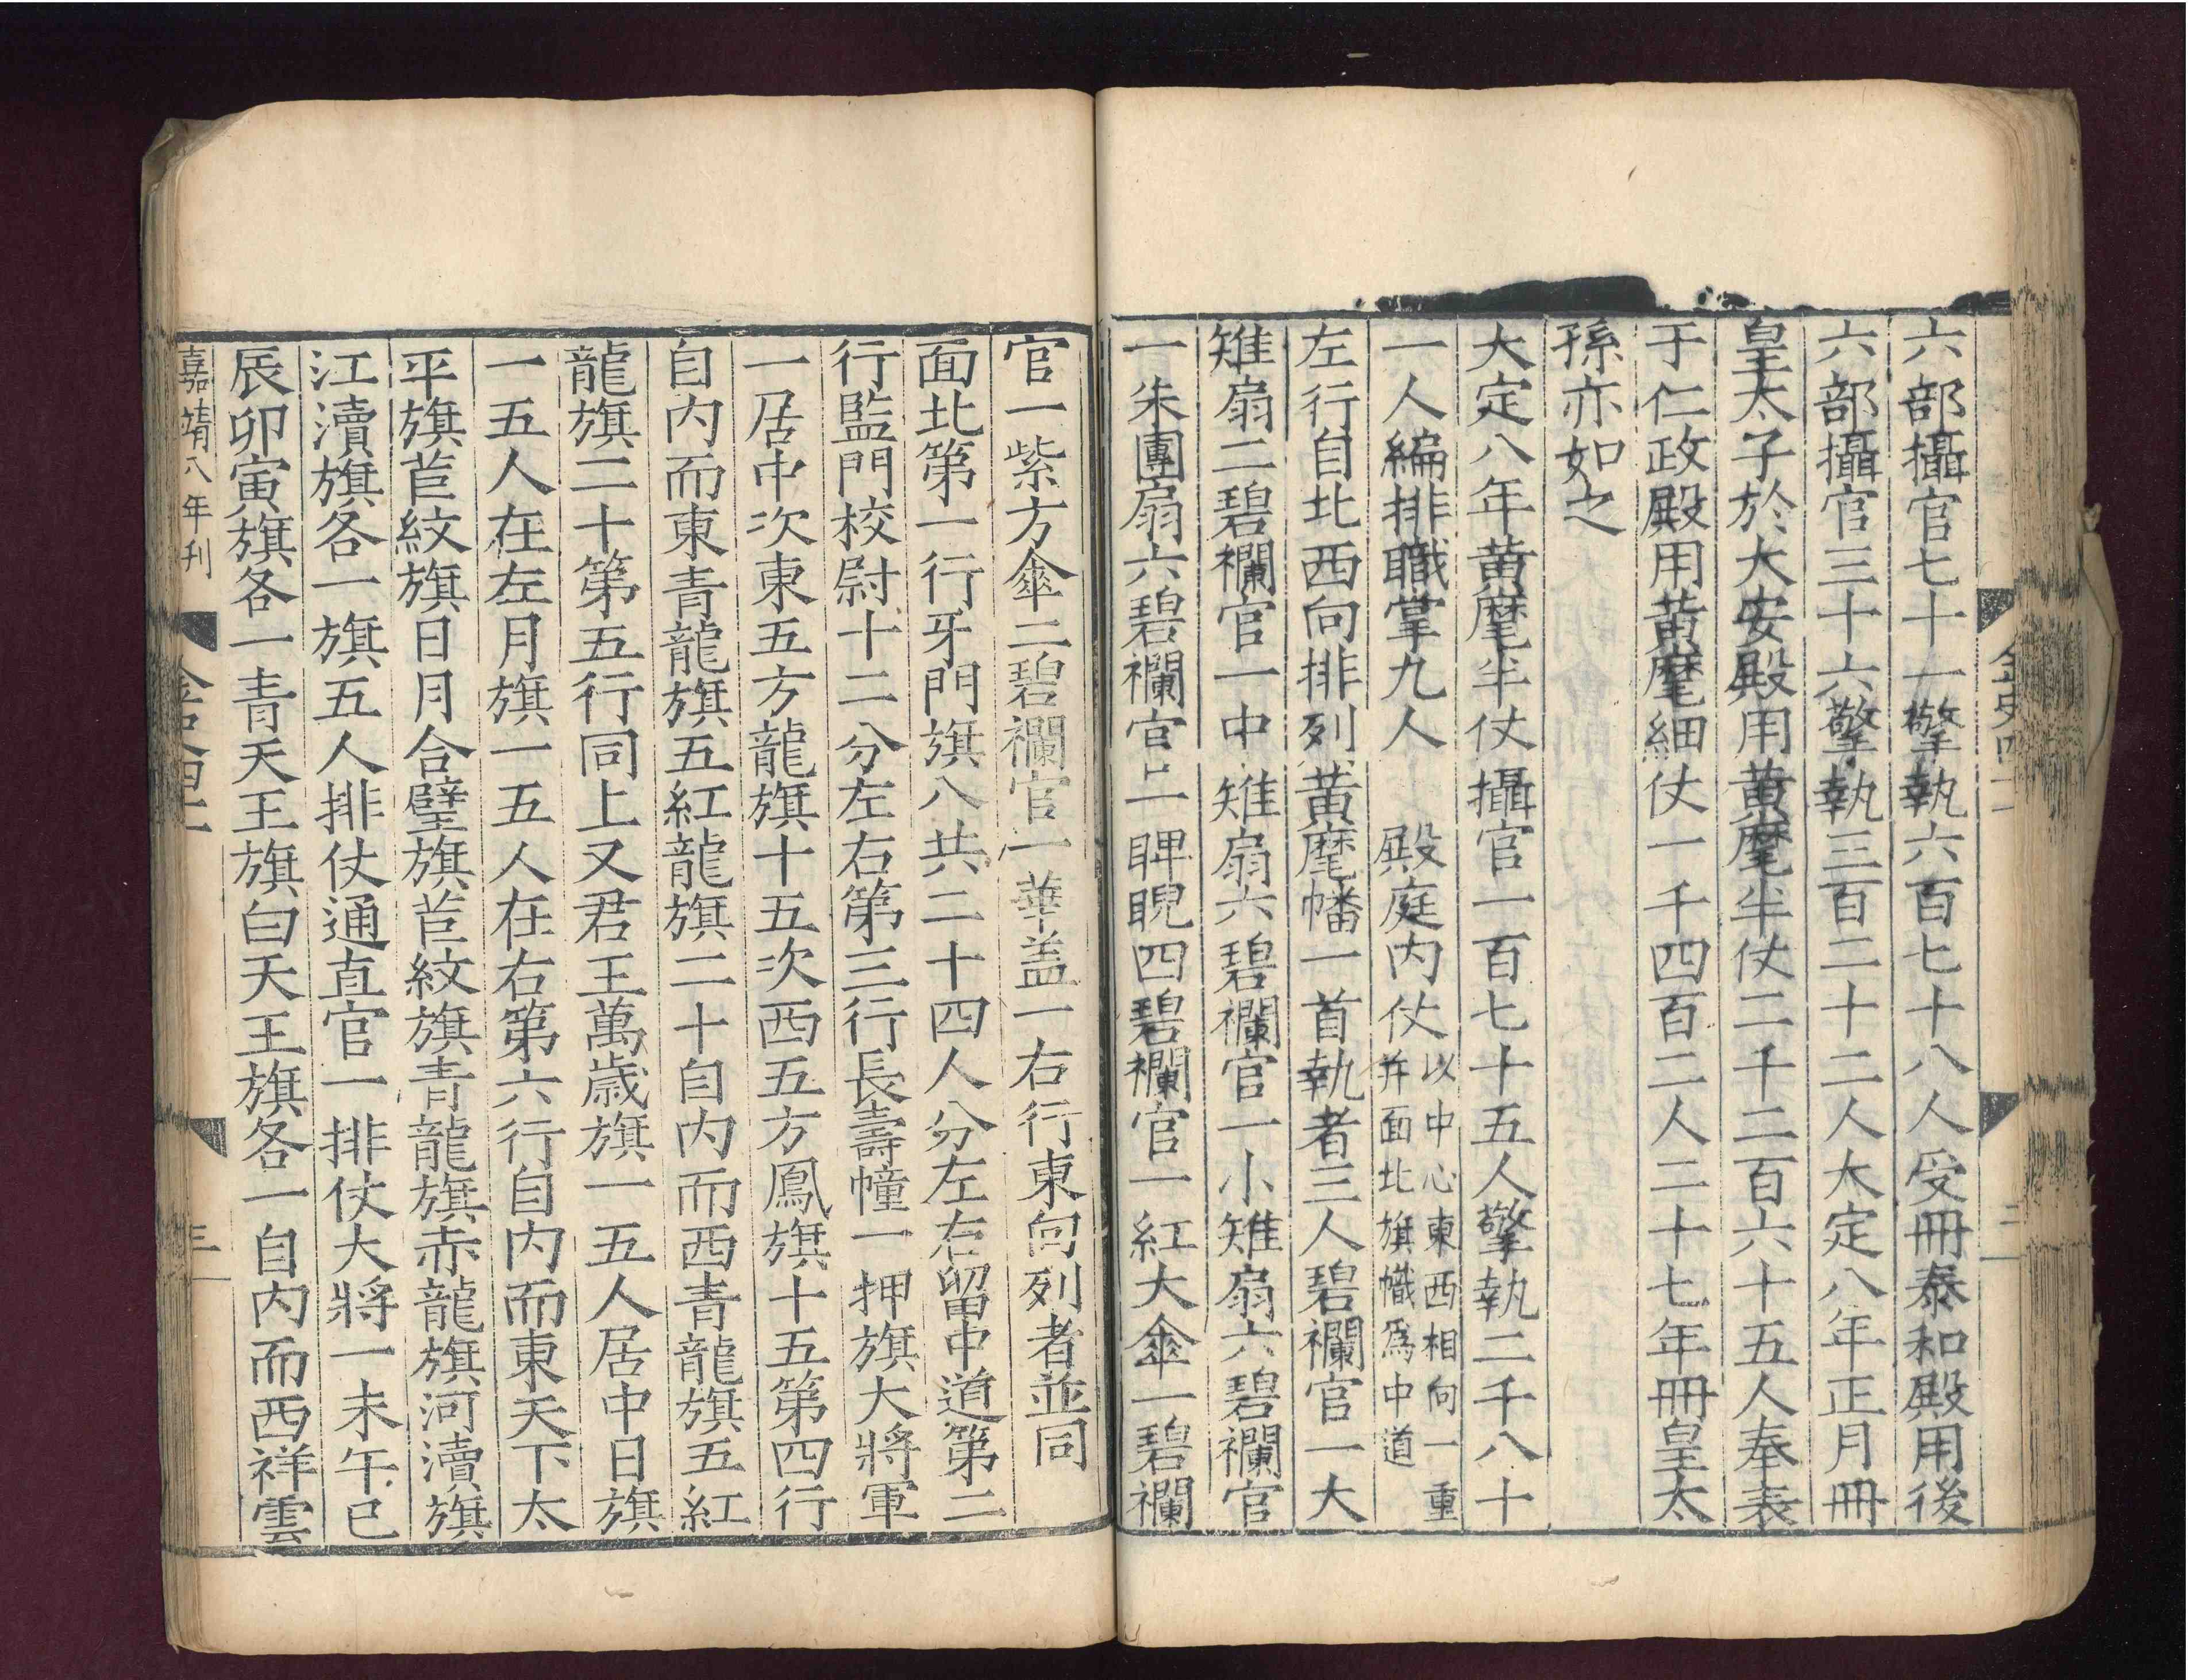 六部攝官七十一擎執六百七十八人受冊泰和殿用後
六部攝官三十六擎執三百二十二人大定八年正月冊
皇太子於大安殿用黃麾半仗二千二百六十五人奉表
于仁政殿用黃麾細仗一千四百二人二十七年冊皇太
孫亦如之
大定八年黃麾半仗攝官一百七十五人擎執二千八十
一人編排職掌九人 殿庭內仗以中心東西相向一重并面北旗幟爲中道
左行自北西向排列黃麾幡一首執者三人碧襴官一大
雉扇二碧襴官一中雉扇六碧襴官一小雉扇六碧襴官
一朱團扇六碧襴官二睥睨四碧襴官一紅大傘一碧襴
官一紫方傘二碧襴官一華盖一右行東向列者並同
面北第一行牙門旗八共二十四人分左右留中道第二
行監門校尉十二分左右第三行長壽幢一押旗大將軍
一居中次東五方龍旗十五次西五方鳳旗十五第四行
自內而東青龍旗五紅龍旗二十自內而西青龍旗五紅
龍旗二十第五行同上又君王萬歲旗一五人居中日旗
一五人在左月旗一五人在右第六行自內而東天下太
平旗苣紋旗日月合璧旗苣紋旗青龍旗赤龍旗河瀆旗
江瀆旗各一旗五人排仗通直官一排仗大將一未午巳
辰卯寅旗各一青天王旗白天王旗各一自內而西祥雲
嘉靖八年刊
三